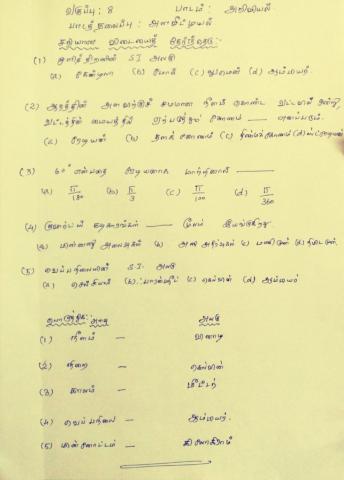 வகுப்பு : 8 பாடம் : அறிவியல்
பாடத்தலைப்பு : அளவீட்டியல்
சரியான விடையைத் தேர்ந்தெடு :
(1) ஒளிச்செறிவின் S.I அலகு
(a) கேண்டிலா (b) மோல் (c) (d) ஆம்பியர்.
(2) ஆரத்தின் அளவுக்குச் சமமான நீளம் கொண்ட வட்டவில் ஒன்று
வட்டத்தின் மையத்தில் ஏற்படுத்தும் கோணம் — எனப்படும்.
(a) ரேடியன் (b) தளக் கோணம் (c) திண்மக்கோணம் (d)
(3) 60° என்பதை ரேடியனாக மாற்றினால் —
(a) π/180 (b) π/3 (c) π/100 (d) π/360
(4) குவார்ட்ஸ் கடிகாரங்கள் — மூலம் இயங்குகிறது.
(a) மின்னணு அலைவுகள் (b) அணு அதிர்வுகள் (c) (d)
(5) வெப்பநிலையின் S.I. அலகு
(a) செல்சியஸ் (b) ஃபாரன்ஹீட் (c) கெல்வின் (d) ஆம்பியர்
பொருத்துக : அளவு அலகு
(1) நீளம் — வினாடி
(2) நிறை — கெல்வின்
(3) காலம் — மீட்டர்
(4) வெப்பநிலை — ஆம்பியர்.
(5) மின்னோட்டம் — கிலோகிராம்